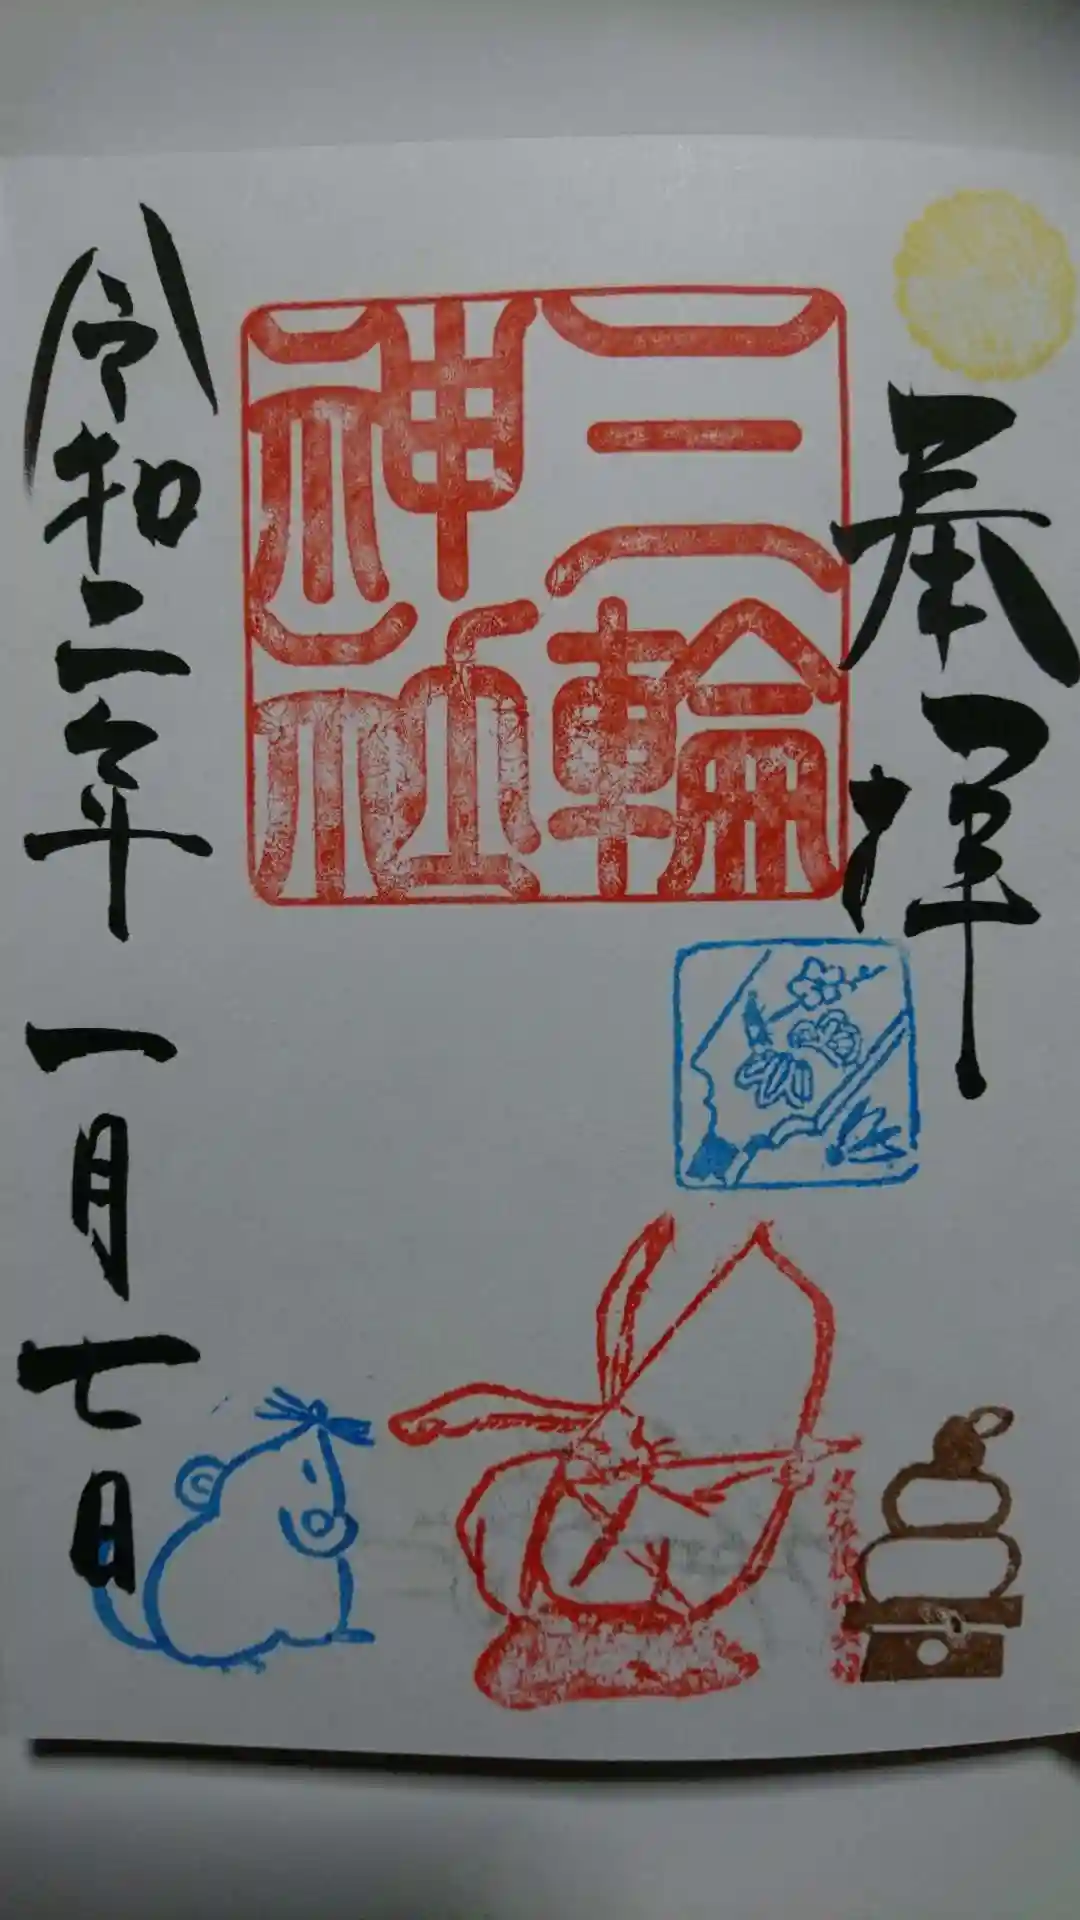 奉拝
三輪
神社
令和二年 一月七日